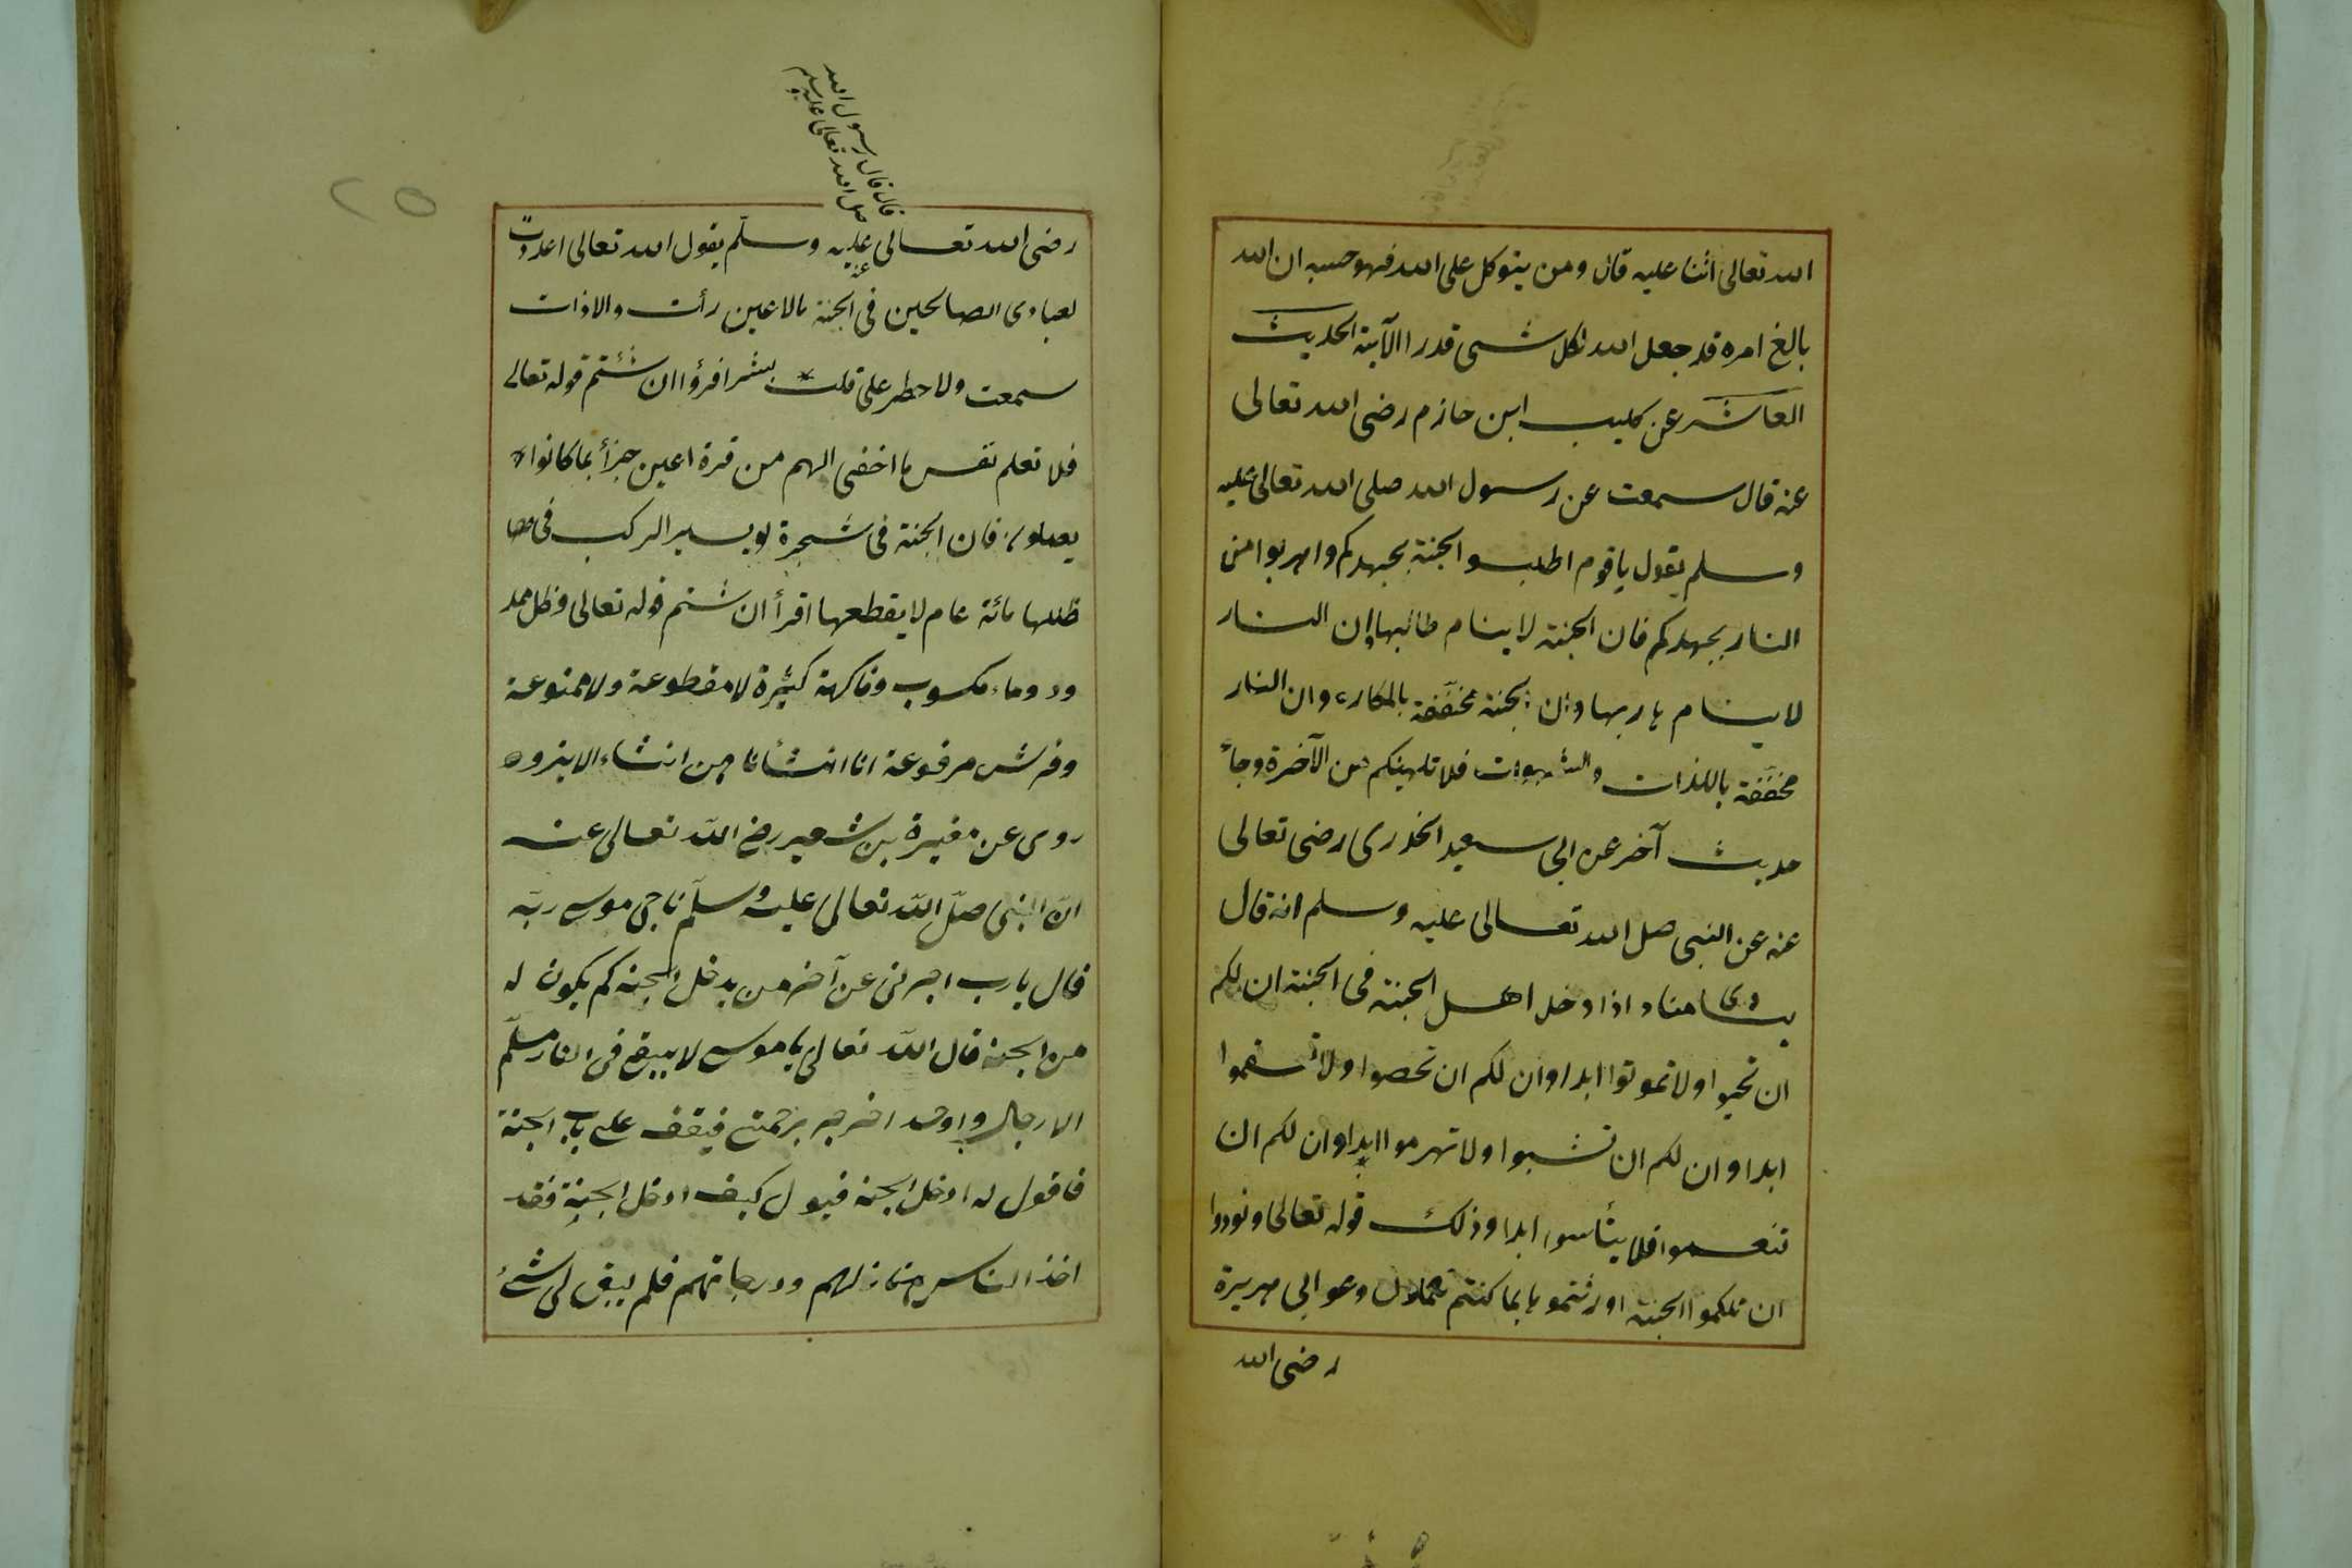 الله تعالى اثنا عليه قال ومن يتوكل على الله فهو حسبه ان الله
بالغ امره قد جعل الله لكل شئ قدرا الآية الحديث
العاشر عن كليب ابن حازم رضى الله تعالى
عنه قال سمعت عن رسول الله صلى الله تعالى عليه
وسلم يقول يا قوم اطلبوا الجنة بجهدكم واهربوا من
النار بجهدكم فان الجنة لا ينام طالبها وان النار
لا ينام هاربها وان الجنة محففة بالمكاره وان النار
محففة باللذات والشهوات فلا تلهينكم عن الآخرة وجاء
حديث آخر عن ابى سعيد الخدرى رضى تعالى
عنه عن النبى صل الله تعالى عليه وسلم انه قال
ينادى مناد اذا دخل اهل الجنة فى الجنة ان لكم
ان تحيوا ولا تموتوا ابدا وان لكم ان تصحوا ولا تسقموا
ابدا وان لكم ان تشبوا ولا تهرموا ابدا وان لكم ان
تنعموا فلا يبأسوا ابدا وذلك قوله تعالى ونودوا
ان تلكموا الجنة اورثتموها بما كنتم تعملون وعن ابى هريرة
رضى الله
قال قال رسول الله
صل الله تعالى عليه وسلم
رضى الله تعالى عنه عليه وسلم يقول الله تعالى اعددت
لعبادى الصالحين فى الجنة مالا عين رأت والا اذات
سمعت ولا خطر على قلب بشر افرؤا ان شئتم قوله تعالى
فلا تعلم نفس ما اخفى الهم من قرة اعين جزأ بما كانوا
يعملون فان الجنة فى شجرة لو يسير الركب فى
ظللها مائة عام لا يقطعها اقرأ ان شئتم قوله تعالى وظل ممد
ود وماء مكسوب وفاكهة كثيرة لا مقطوعة ولا ممنوعة
وفرش مرفوعة انا انشأنا هن انشاء الاية
روى عن مغيرة بن شعير رضى الله تعالى عنه
ان النبى صلى الله تعالى عليه وسلم ناجى موسى ربه
قال يا رب اخبرنى عن آخر من يدخل الجنة كم يكون له
من الجنة قال الله تعالى يا موسى لا يبيق فى النار مسلم
الا رجال واحد اخرجه برحمتى فيقف على باب الجنة
فاقول له ادخل الجنة فيقول كيف ادخل الجنة فقد
اخذ الناس منازلهم ودرجاتهم فلم يبق لى شئ
٢٥